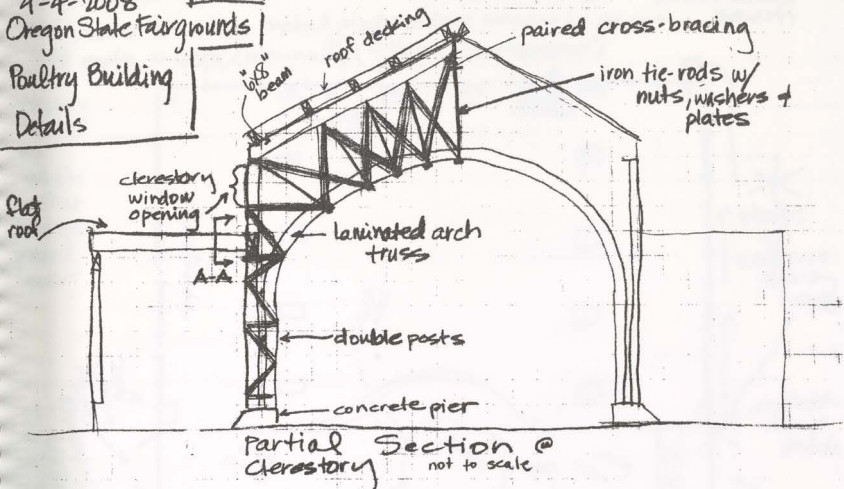 4-4-2008
Oregon State Fairgrounds
Poultry Building
Details
6"x8"
beam
roof decking
paired cross-bracing
iron tie-rods w/
nuts, washers +
plates
clerestory
window
opening
flat
roof
A-A
laminated arch
truss
double posts
concrete pier
Partial Section @
Clerestory
not to scale